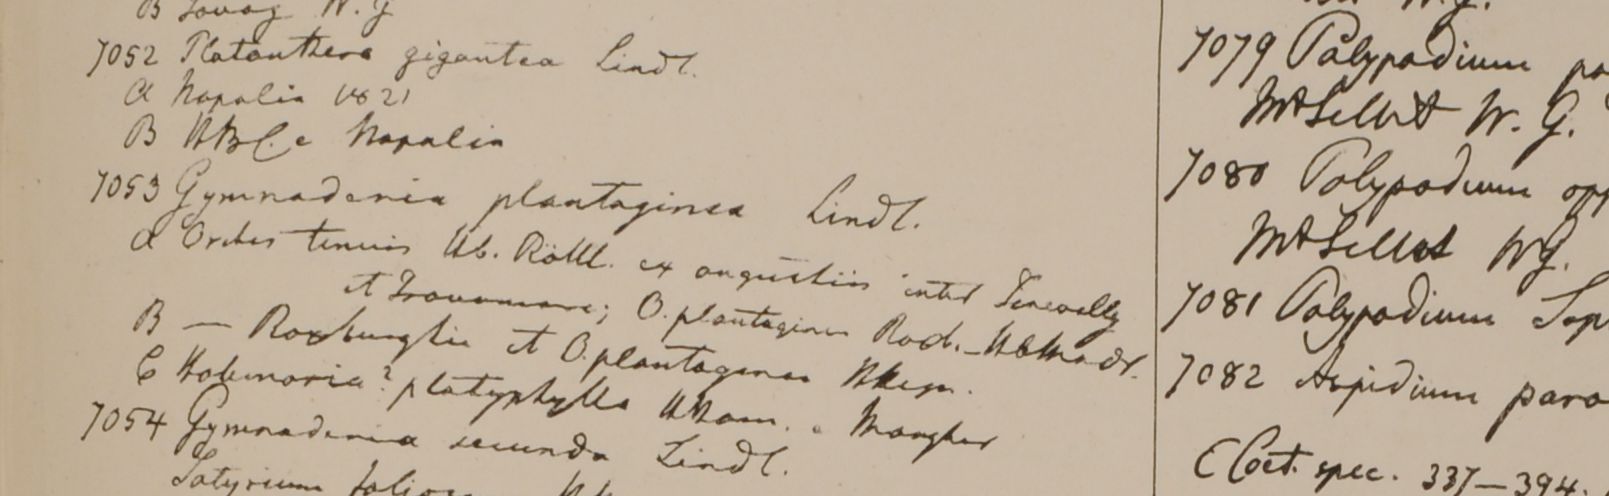 B Tavoy W. G
7052 Platanthera gigantea Lindl.
a Napalia 1821
B HBC. e Napalia
7053 Gymnadenia plantaginea Lindl.
a Orchis tenuis Hb. Rottl. ex angustiis inter Tinevelly
et Travancore; O. plantaginea Roxb. – Hb Madr.
B — Roxburghii et O. plantaginea HHeyn.
C Habenaria? platyphylla HHam. e Monghir
7054 Gymnadenia secunda Lindl.
Satyrium
W. G.
7079 Polypodium
W. G.
7080 Polypodium opp
WG.
7081 Polypodium
7082 Aspidium para
C Cat. spec. 337–394.